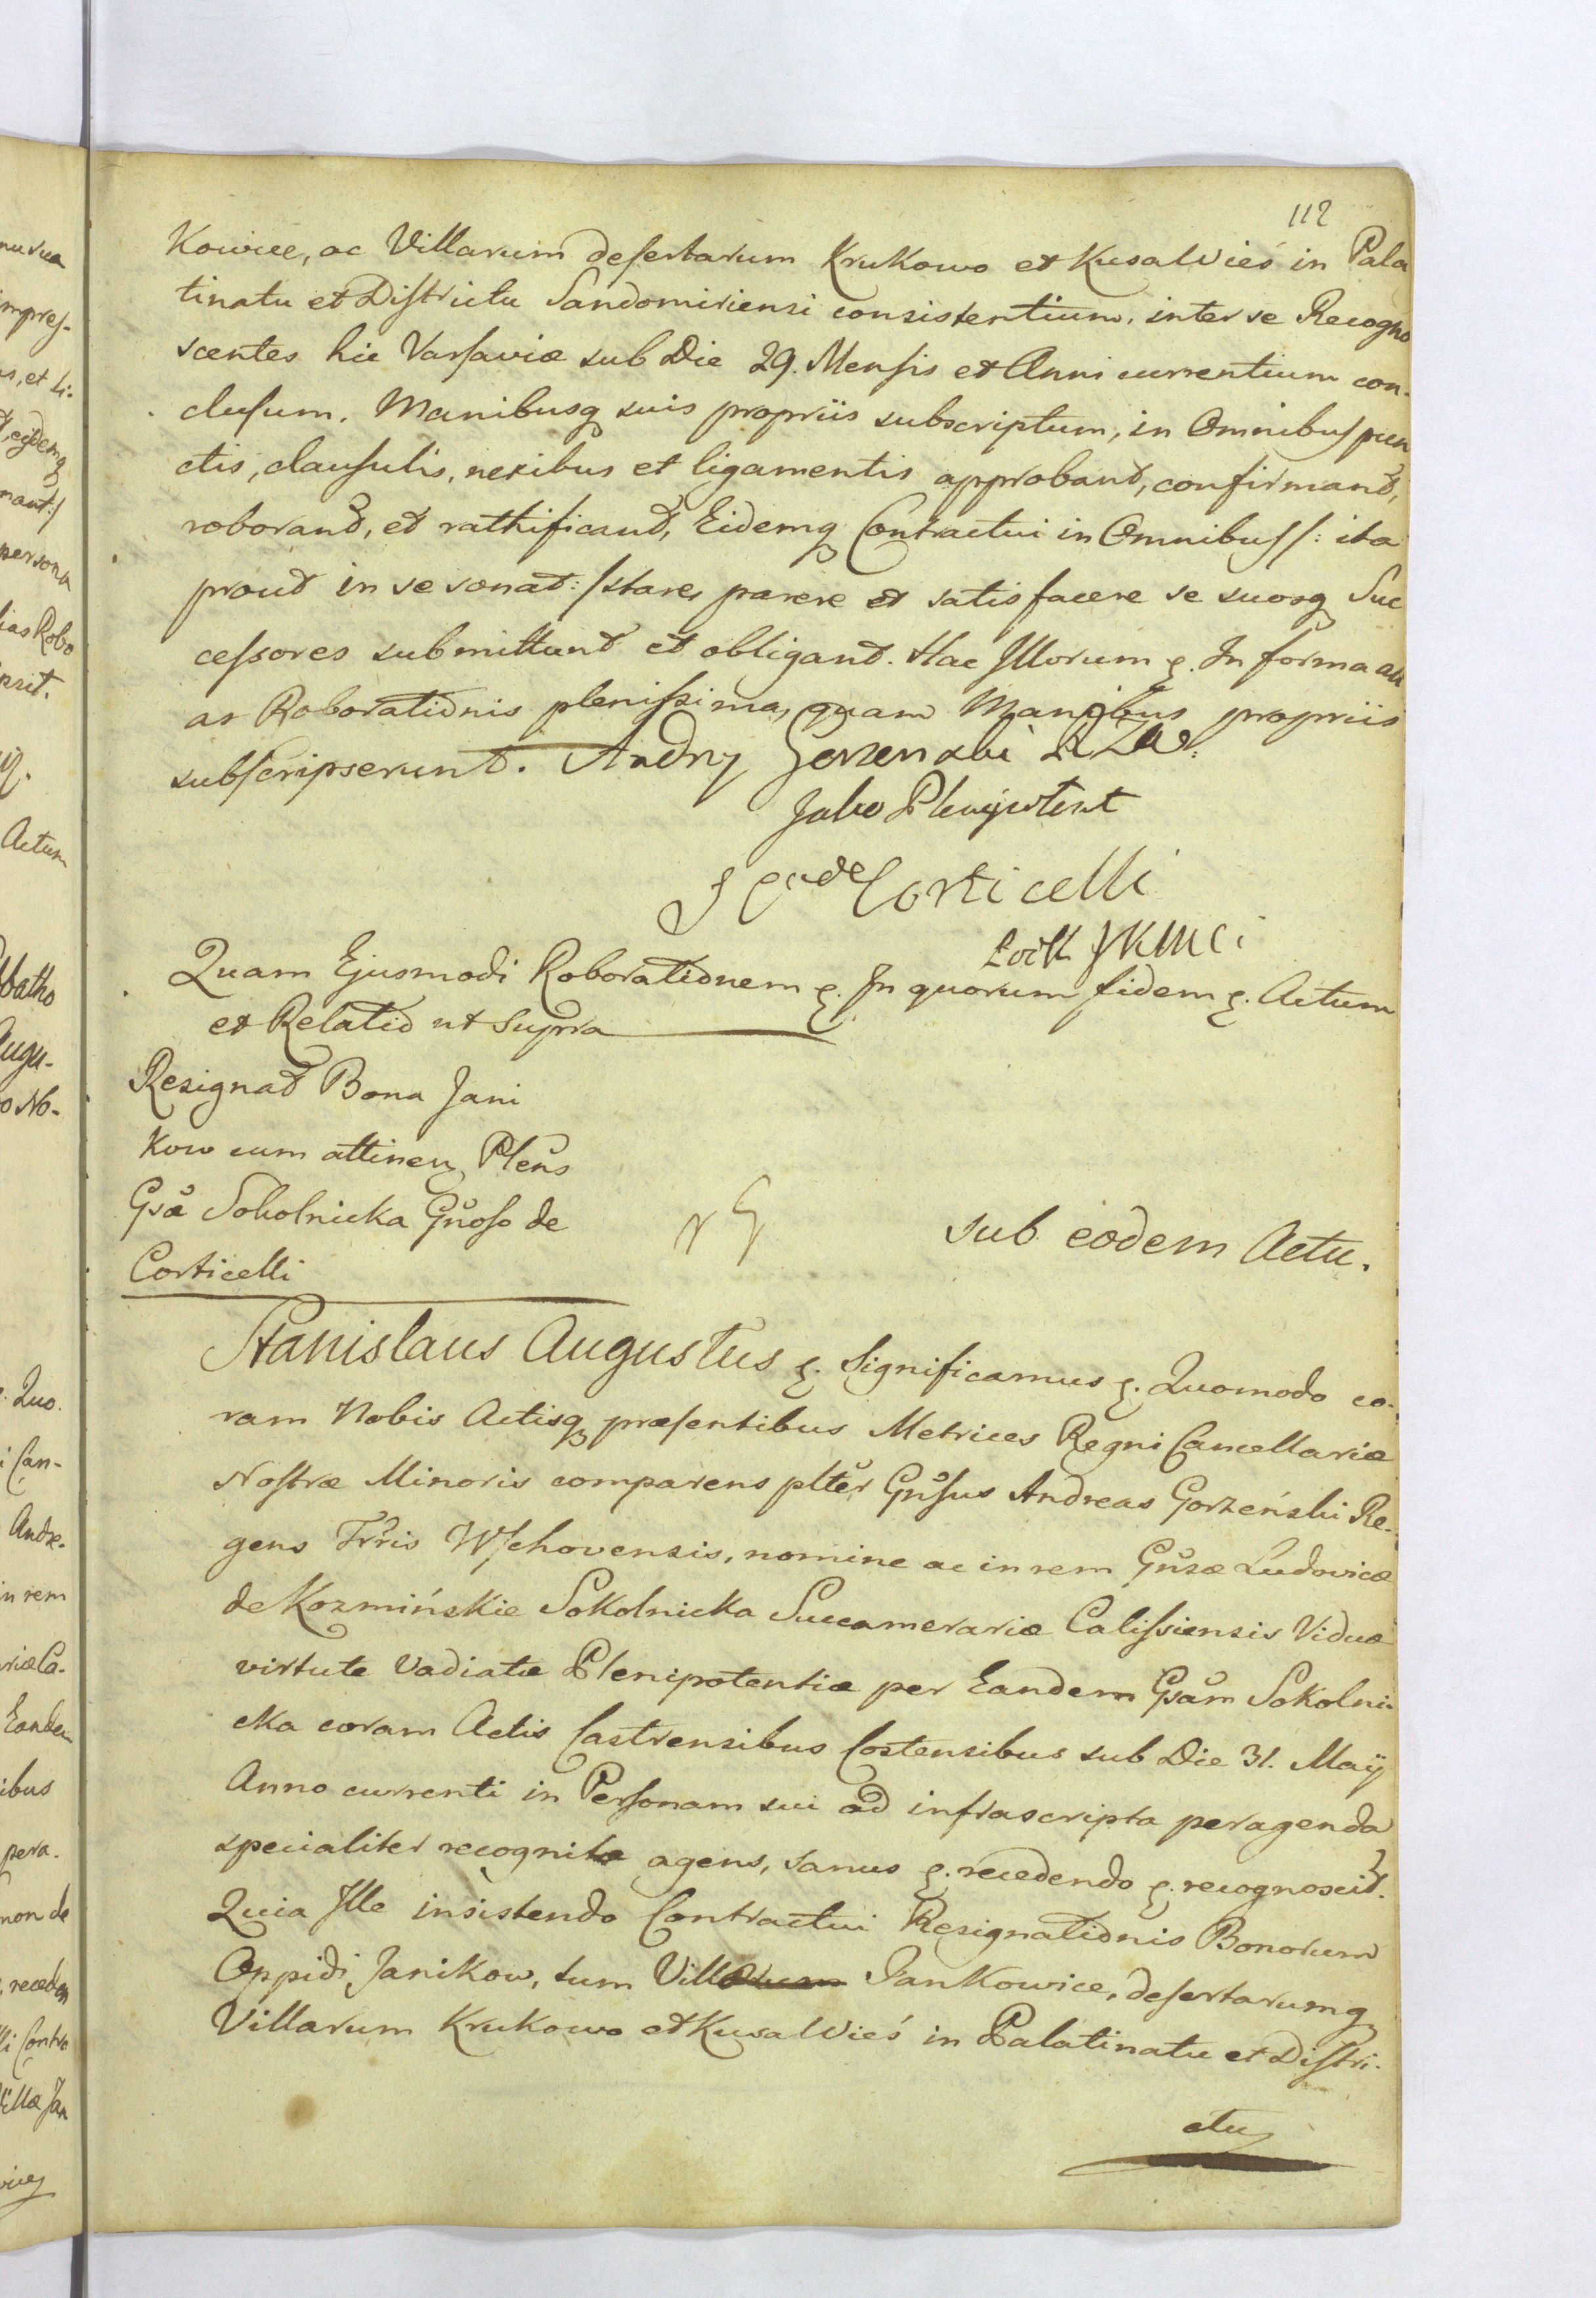 112
Kowice, ac Villarum desertarum Krukowo et KusaWieś in Pala
tinatu et Districtu Sandomiriensi consistentium, inter se Recogno
scentes hic Varsaviæ sub Die 29. Mensis et Anni currentium con-
clusum, Manibusq suis propriis subscriptum, in Omnibus pun
ctis, clausulis, nexibus et ligamentis approbant, confirmant,
roborant, et rathificant, Eidemq Contractui in Omnibus /: ita
prout in se sonat :/ stare, parere et satisfacere se suosq Suc
cessores submittunt et obligant. Hac Illorum &. In forma au
ar Roborationis plenissima, quam Manibus propriis
subscripserunt. Andrzy Gorzenski RZW:
Jako Plenipotent
de Corticelli
JKMCi
Quam Ejusmodi Roborationem &. In quorum fidem &. Actum
et Relatio ut supra
Resignat Bona Jani
Kow cum attinen, Plens
Gsa Sokolnicka Gnoso de
Corticelli
sub eodem Actu.
Stanislaus Augustus &. Significamus &. Quomodo co-
ram Nobis Actisq præsentibus Metrices Regni Cancellariæ
Nostræ Minoris comparens plter Gnsus Andreas Gorzeński Re-
gens Trris Wschovensis, nomine ac in rem Gnsæ Ludovicæ
de Kozmińskie Sokolnicka Succamerariæ Calissiensis Viduæ
virtute Vadiatæ Plenipotentiæ per Eandem Gsam Sokolni-
cka coram Actis Castrensibus Costensibus sub Die 31. Maÿ
Anno currenti in Personam sui ad infrascripta peragenda
specialiter recognitæ agens, sanus &. recedendo &. recognoscit.
Quia Ille insistendo Contractui Resignationis Bonorum
Oppidi Janikow, tum Villæ Jankowice, desertarumq
Villarum Krukowo et KusaWieś in Palatinatu et Distri-
ctu